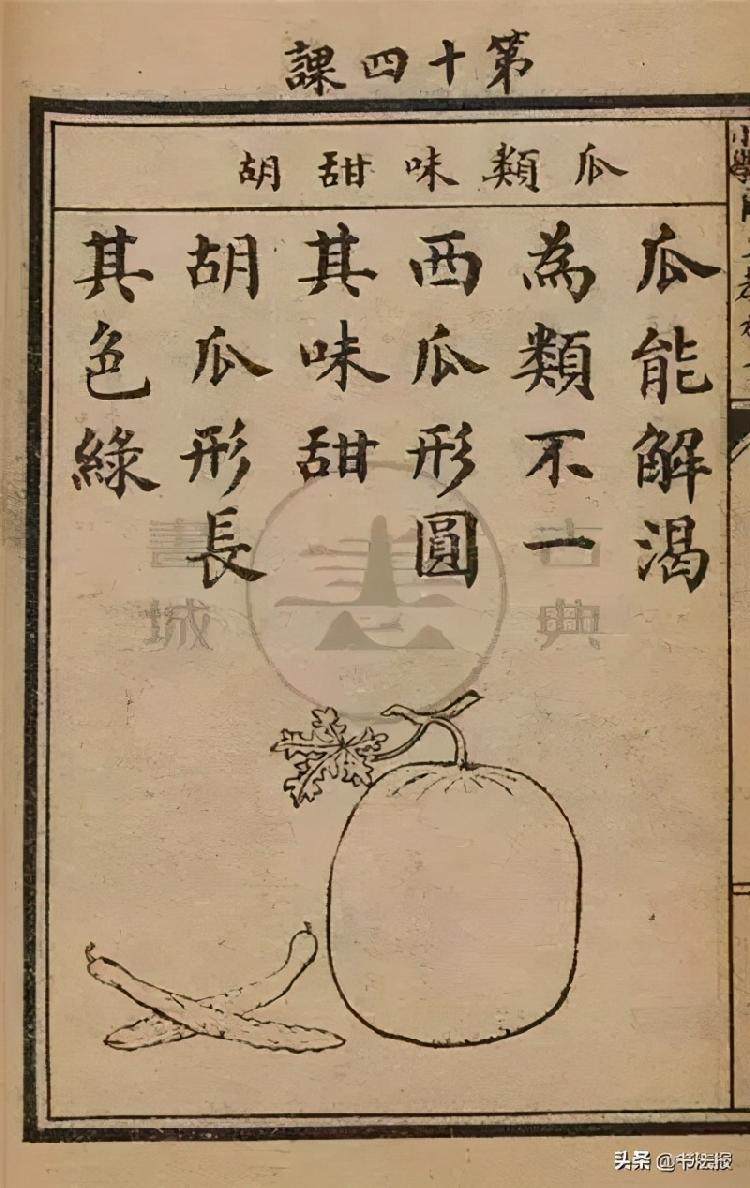 第十四課
瓜類味甜胡
瓜能解渴
為類不一
西瓜形圓
其味甜
胡瓜形長
其色綠
古典
書城
头条 @书法报